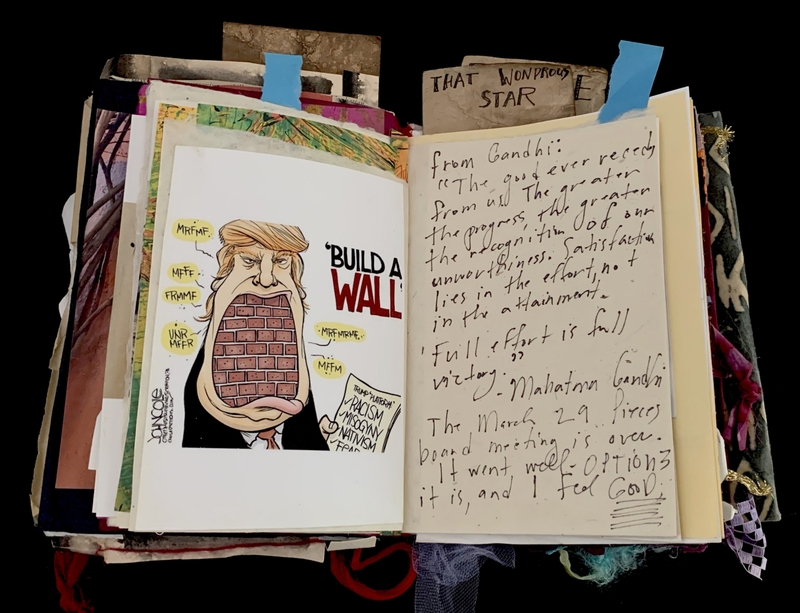 THAT WONDROUS
STAR E
MRFMF
MFFF
FRMMF
UNR
MFFR
'BUILD A
WALL'
MRFMRMF
MFFM
JOHN COLE
TRUMP "PLATFORM"
✓RACISM,
✓MISOGYNY
✓NATIVISM
✓FEAR
from Gandhi:
"The good ever recedes
from us. The greater
the progress, the greater
the recognition of our
unworthiness. Satisfaction
lies in the effort, not
in the attainment.
Full effort is full
victory."
- Mahatma Gandhi
The March 29
board meeting is over.
It went well - OPTION 3
it is, and I feel GOOD.